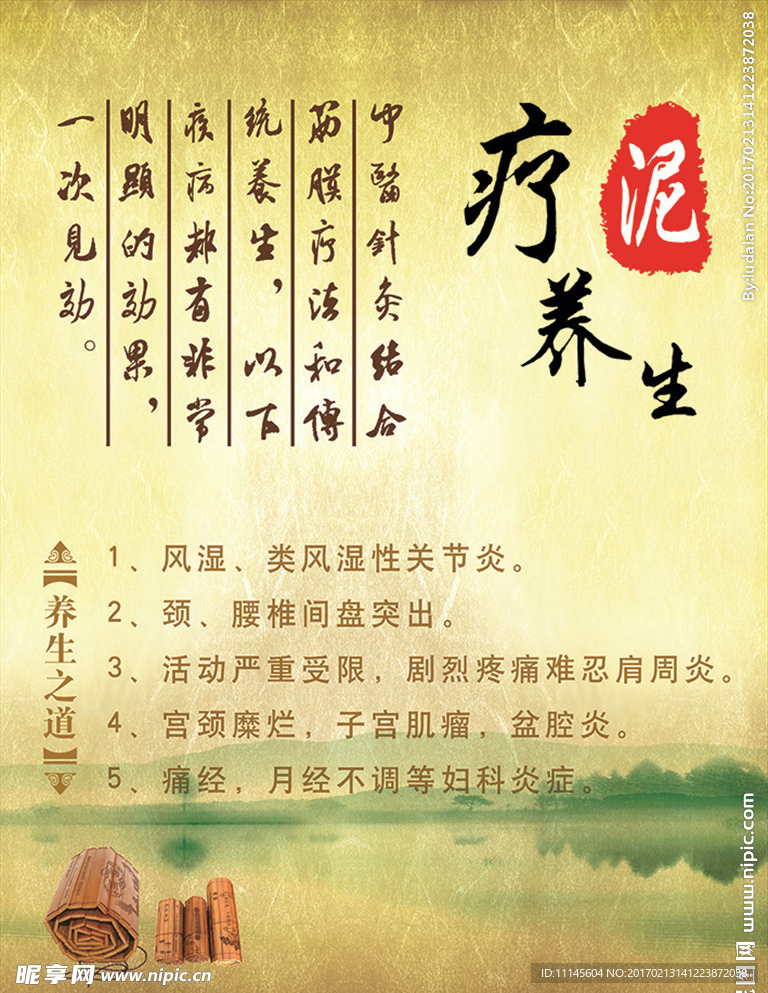 泥
疗
养
生
中醫針灸结合
筋膜疗法和傳
统養生，以下
疾病都有非常
明顯的効果，
一次見効。
【养生之道】
1、风湿、类风湿性关节炎。
2、颈、腰椎间盘突出。
3、活动严重受限，剧烈疼痛难忍肩周炎。
4、宫颈糜烂，子宫肌瘤，盆腔炎。
5、痛经，月经不调等妇科炎症。
By:ludalan No:20170213141223872038
www.nipic.com
昵享网 www.nipic.cn
ID:11145604 NO:20170213141223872038